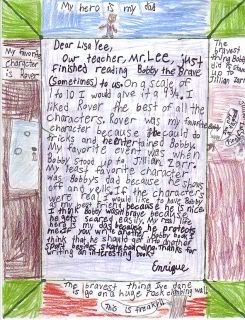 My hero is my dad
My favorite
character
is Rover
The
bravest
thing Bobby
did
up to
Jillian Zarr.
Dear Lisa Yee,
Our teacher, Mr. Lee, just
finished reading Bobby the Brave
(Sometimes) to us. On a scale of
1 to 10 I would give it a 9 3/4. I
liked Rover the best of all the
characters. Rover was my favorite
character because could do
tricks and he entertained Bobby.
My favorite event was when
Bobby stood up to Jillian Zarr.
My least favorite character
was Bobby's dad because he shows
off and yells. If the characters
were real I would like to have Bobby
as my best friend because he is nice.
I think Bobby wasn't brave because he
gets scared easily. My real life
hero is my dad because he protects
me. If you write another Bobby book I
think that he should get into another
sport besides skateboarding. Thanks for
writing an interesting book!
Enrique
The bravest thing I've done
is go on a huge rock climbing wall.
This is freaky!!